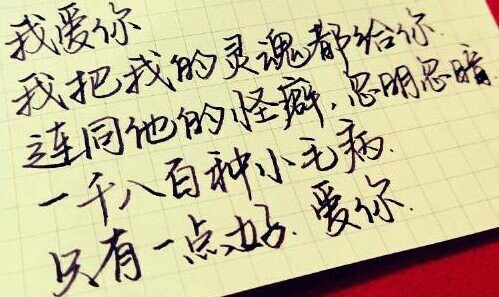 我爱你
我把我的灵魂都给你.
连同他的怪癖,忽明忽暗
一千八百种小毛病.
只有一点好.爱你.